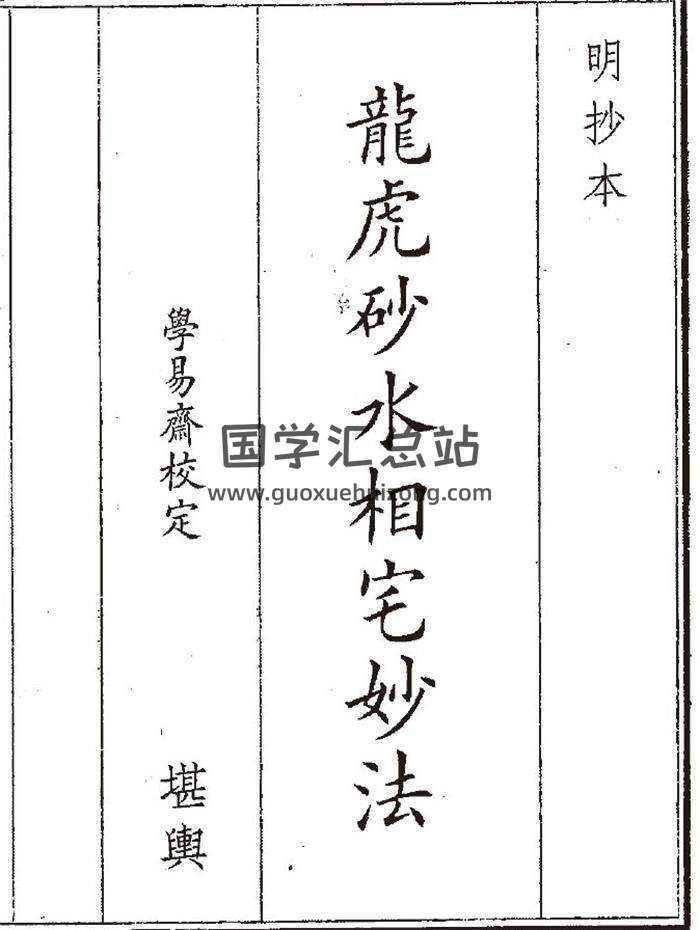 明抄本
龍虎砂水相宅妙法
學易齋校定
堪輿
国学汇总站
www.guoxuehuizong.com